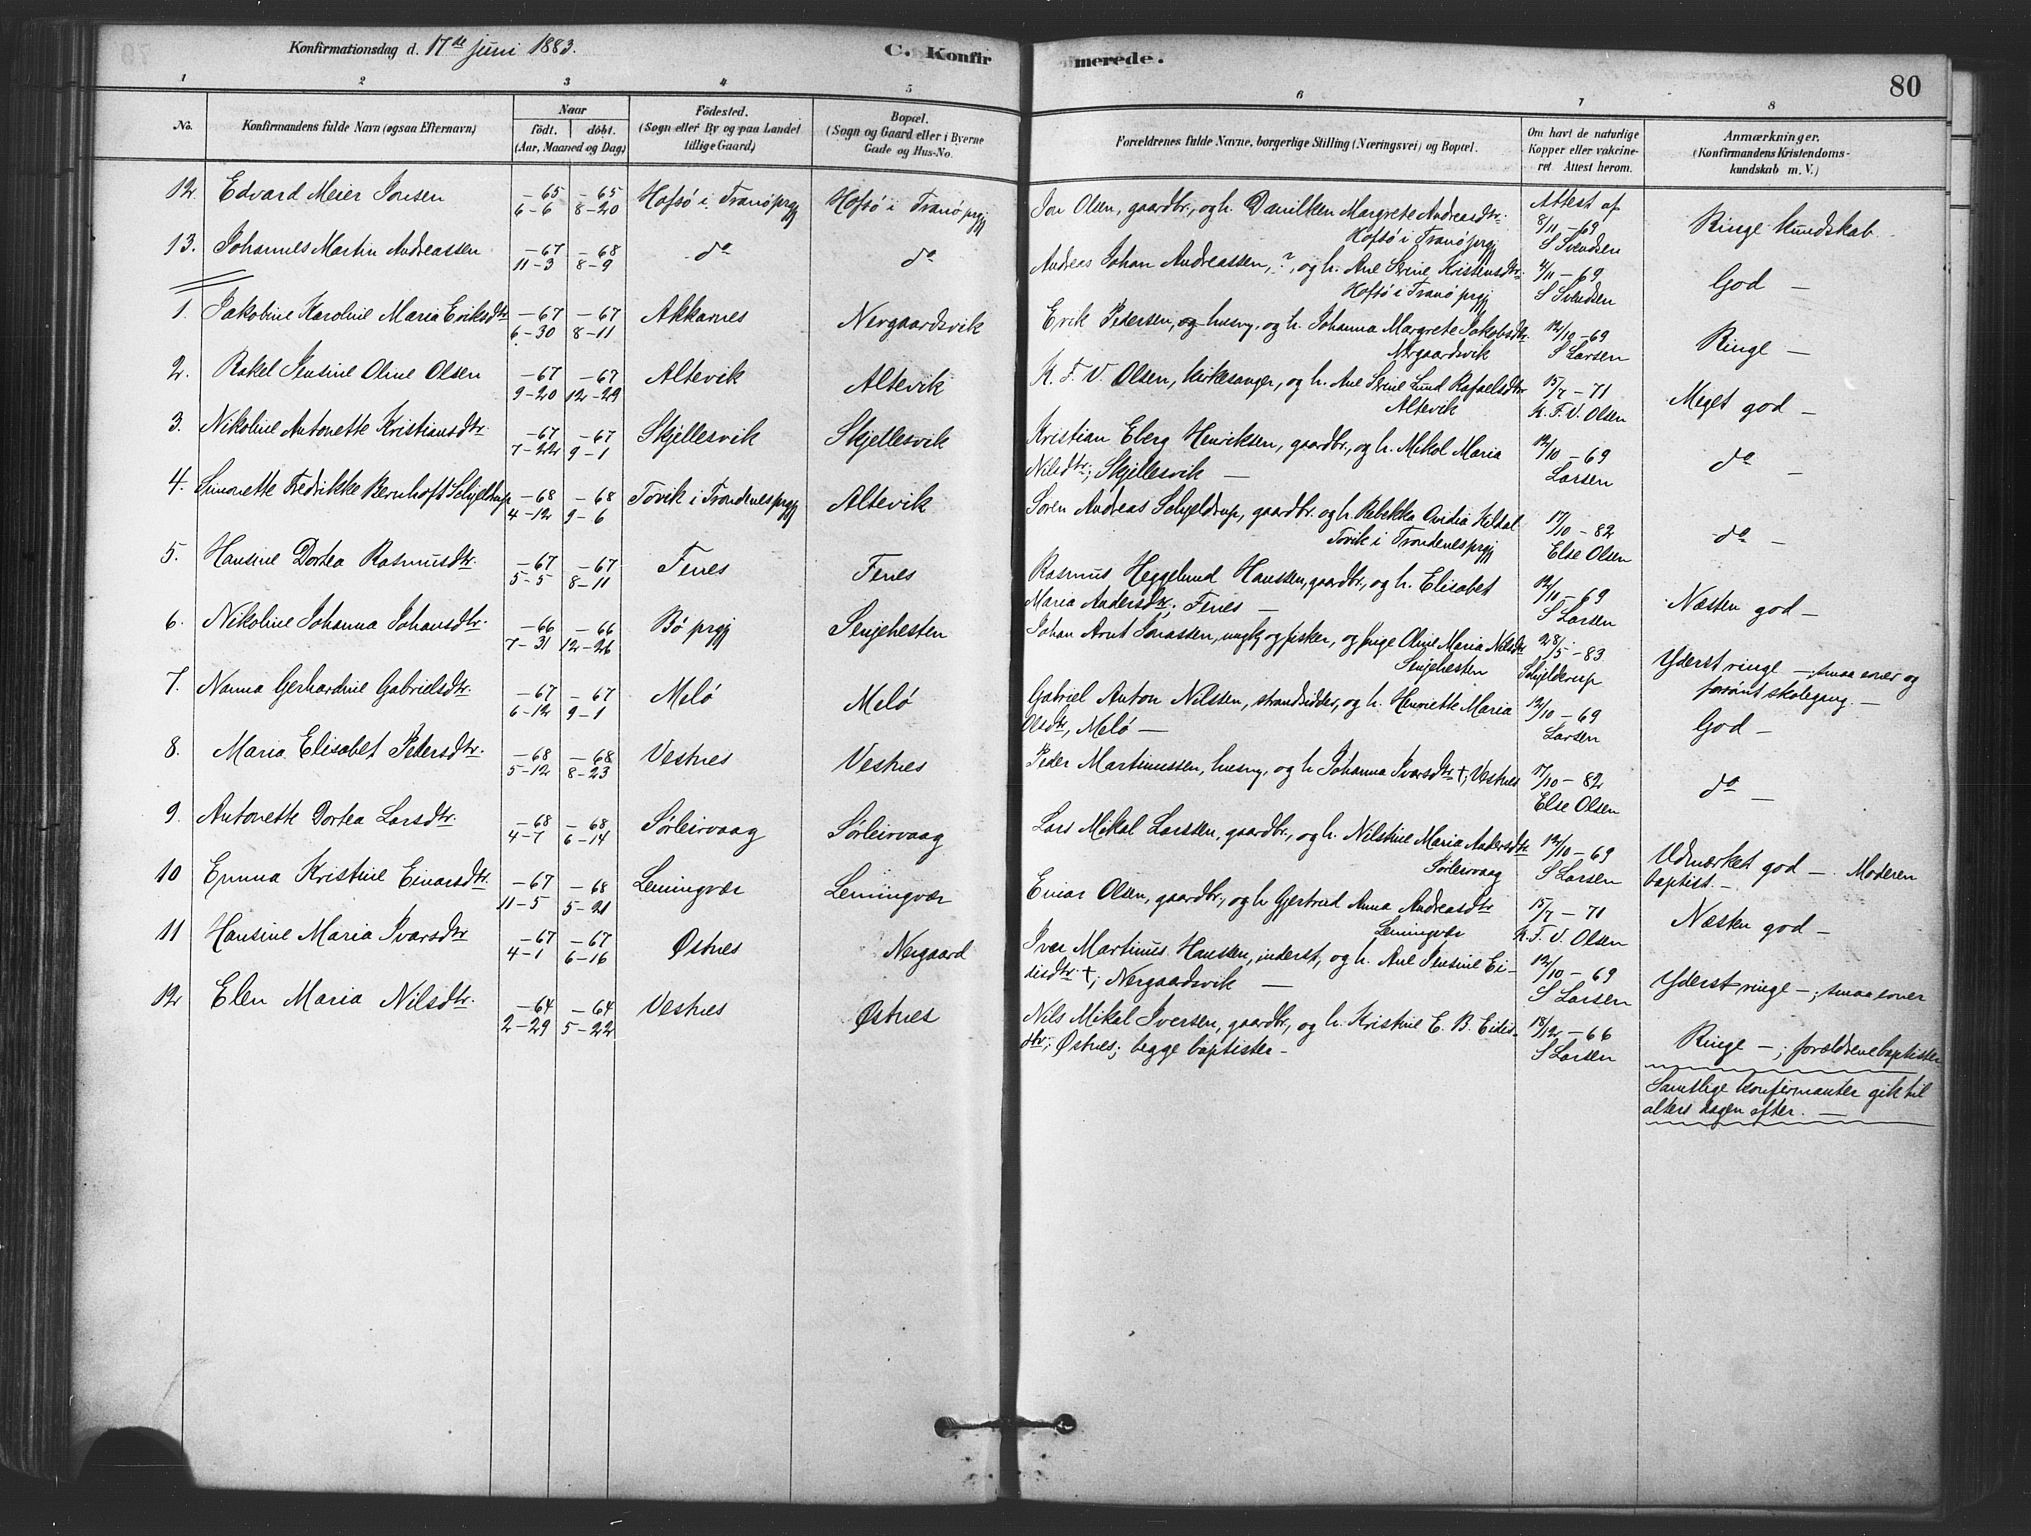 Konfirmationsdag d. 17de juni 1883.
C. Konfirmerede.
80
1 2 3 4 5 6 7 8
No.
Konfirmandens fulde Navn (ogsaa Efternavn)
Naar
födt. döbt.
(Aar, Maaned og Dag)
Födested.
(Sogn eller By og paa Landet
tillige Gaard)
Bopæl.
(Sogn og Gaard eller i Byerne
Gade og Hus-No.
Forældrenes fulde Navne, borgerlige Stilling (Næringsvei) og Bopæl.
Om havt de naturlige
Kopper eller vakcine-
ret Attest herom.
Anmærkninger.
(Konfirmandens Kristendoms-
kundskab m. V.)
12. Edvard Meier Jonsen -65 6-6 -65 8-20 Hofsö i Tranö prgj Hofsö i Tranö prgj Jon Olsen, gaardbr., og h. Danilken Margrete Andreasdtr. Attest af
Hofsö i Tranö prgj 8/11-69 S Svendsen Ringe kundskab
13. Johannes Martin Andreassen -67 11-3 -68 8-9 do do Andreas Johan Andreassen, ?, og h. Ane Serine Kristensdtr.
Hofsö i Tranö prgj 4/11-69 S Svendsen God —
1. Jakobine Karoline Maria Eriksdtr -67 6-30 -67 8-11 Akkarnes Nergaardsvik Erik Pedersen, og husm, og h. Johanna Margrete Jakobsdtr.
Nergaardsvik 12/10-69 S Larsen Ringe —
2. Rakel Jensine Oline Olsen -67 9-20 -67 12-29 Altevik Altevik K. F. V. Olsen, kirkesanger, og h. Ane Serine Lund Rafaelsdtr
Altevik 15/7-71 K. F. V. Olsen Meget god —
3. Nikoline Antonette Kristiansdtr. -67 7-22 -67 9-1 Skjellesvik Skjellesvik Kristian Eberg Henriksen, gaardbr., og h. Mikol Maria
Nilsdtr.; Skjellesvik — 12/10-69 Larsen do —
4. Simonette Fredrikke Bernhoft Schjeldrup -68 4-12 -68 9-6 Tovik i Trondenes prgj Altevik Sören Andreas Schjeldrup, gaardbr. og h. Rebekka Ovidia Kildal
Tovik i Trondenes prgj 17/10-82 Else Olsen do —
5. Hansine Dortea Rasmusdtr. -67 5-5 -67 8-11 Fenes Fenes Rasmus Heggelund Hanssen, gaardbr., og h. Elisabet
Maria Andersdtr.; Fenes — 12/11-69 S Larsen Næsten god —
6. Nikoline Johanna Johansdtr. -66 7-31 -66 12-26 Bö prgj Senjehesten Johan Arnt Jonassen, ungk og fisker, og pige Oline Maria Nilsdtr
Senjehesten 28/5-83 Schjelderup Yderst ringe —; smaa evner og
forsömt skolegang. —
7. Nanna Gerhardine Gabrielsdtr. -67 6-12 -67 9-1 Melö Melö Gabriel Anton Nilssen, strandsidder, og h. Henriette Maria
Olsdtr, Melö — 12/10-69 Larsen God —
8. Maria Elisabet Pedersdtr. -68 5-12 -68 8-23 Vestnes Vestnes Peder Martinussen, husm, og h Johanna Ivarsdtr †, Vestnes 17/10-82
Else Olsen do —
9. Antonette Dortea Larsdtr. -68 4-7 -68 6-14 Sörleirvaag Sörleirvaag Lars Mikal Larssen, gaardbr., og h. Nilstine Maria Andersdtr
Sörleirvaag 12/10-69 S Larsen Udmærket god — Moderen
baptist. —
10 Emma Kristine Einarsdtr -67 11-5 -68 5-21 Lemingvær Lemingvær Einar Olsen, gaardbr., og h Gjertrud Anna Andreasdtr
Lemingvær 15/7-71 K. F. V. Olsen Næsten god —
11 Hansine Maria Ivarsdtr -67 4-1 -67 6-16 Østnes Nergaard Ivar Martinus Hanssen, inderst, og h. Ane Jensine Ei-
disdtr. †; Nergaardsvik — 12/10-69 S Larsen Yderst ringe —; smaa evner
12 Elen Maria Nilsdtr. -64 2-29 -64 5-22 Vestnes Østnes Nils Mikal Iversen, gaardbr, og h. Kristine E. B. Eidis-
dtr.; Østnes; begge baptister — 18/12-66 S Larsen Ringe —; forældrene baptister
Samtlige konfirmanter gik til
alters dagen efter. —